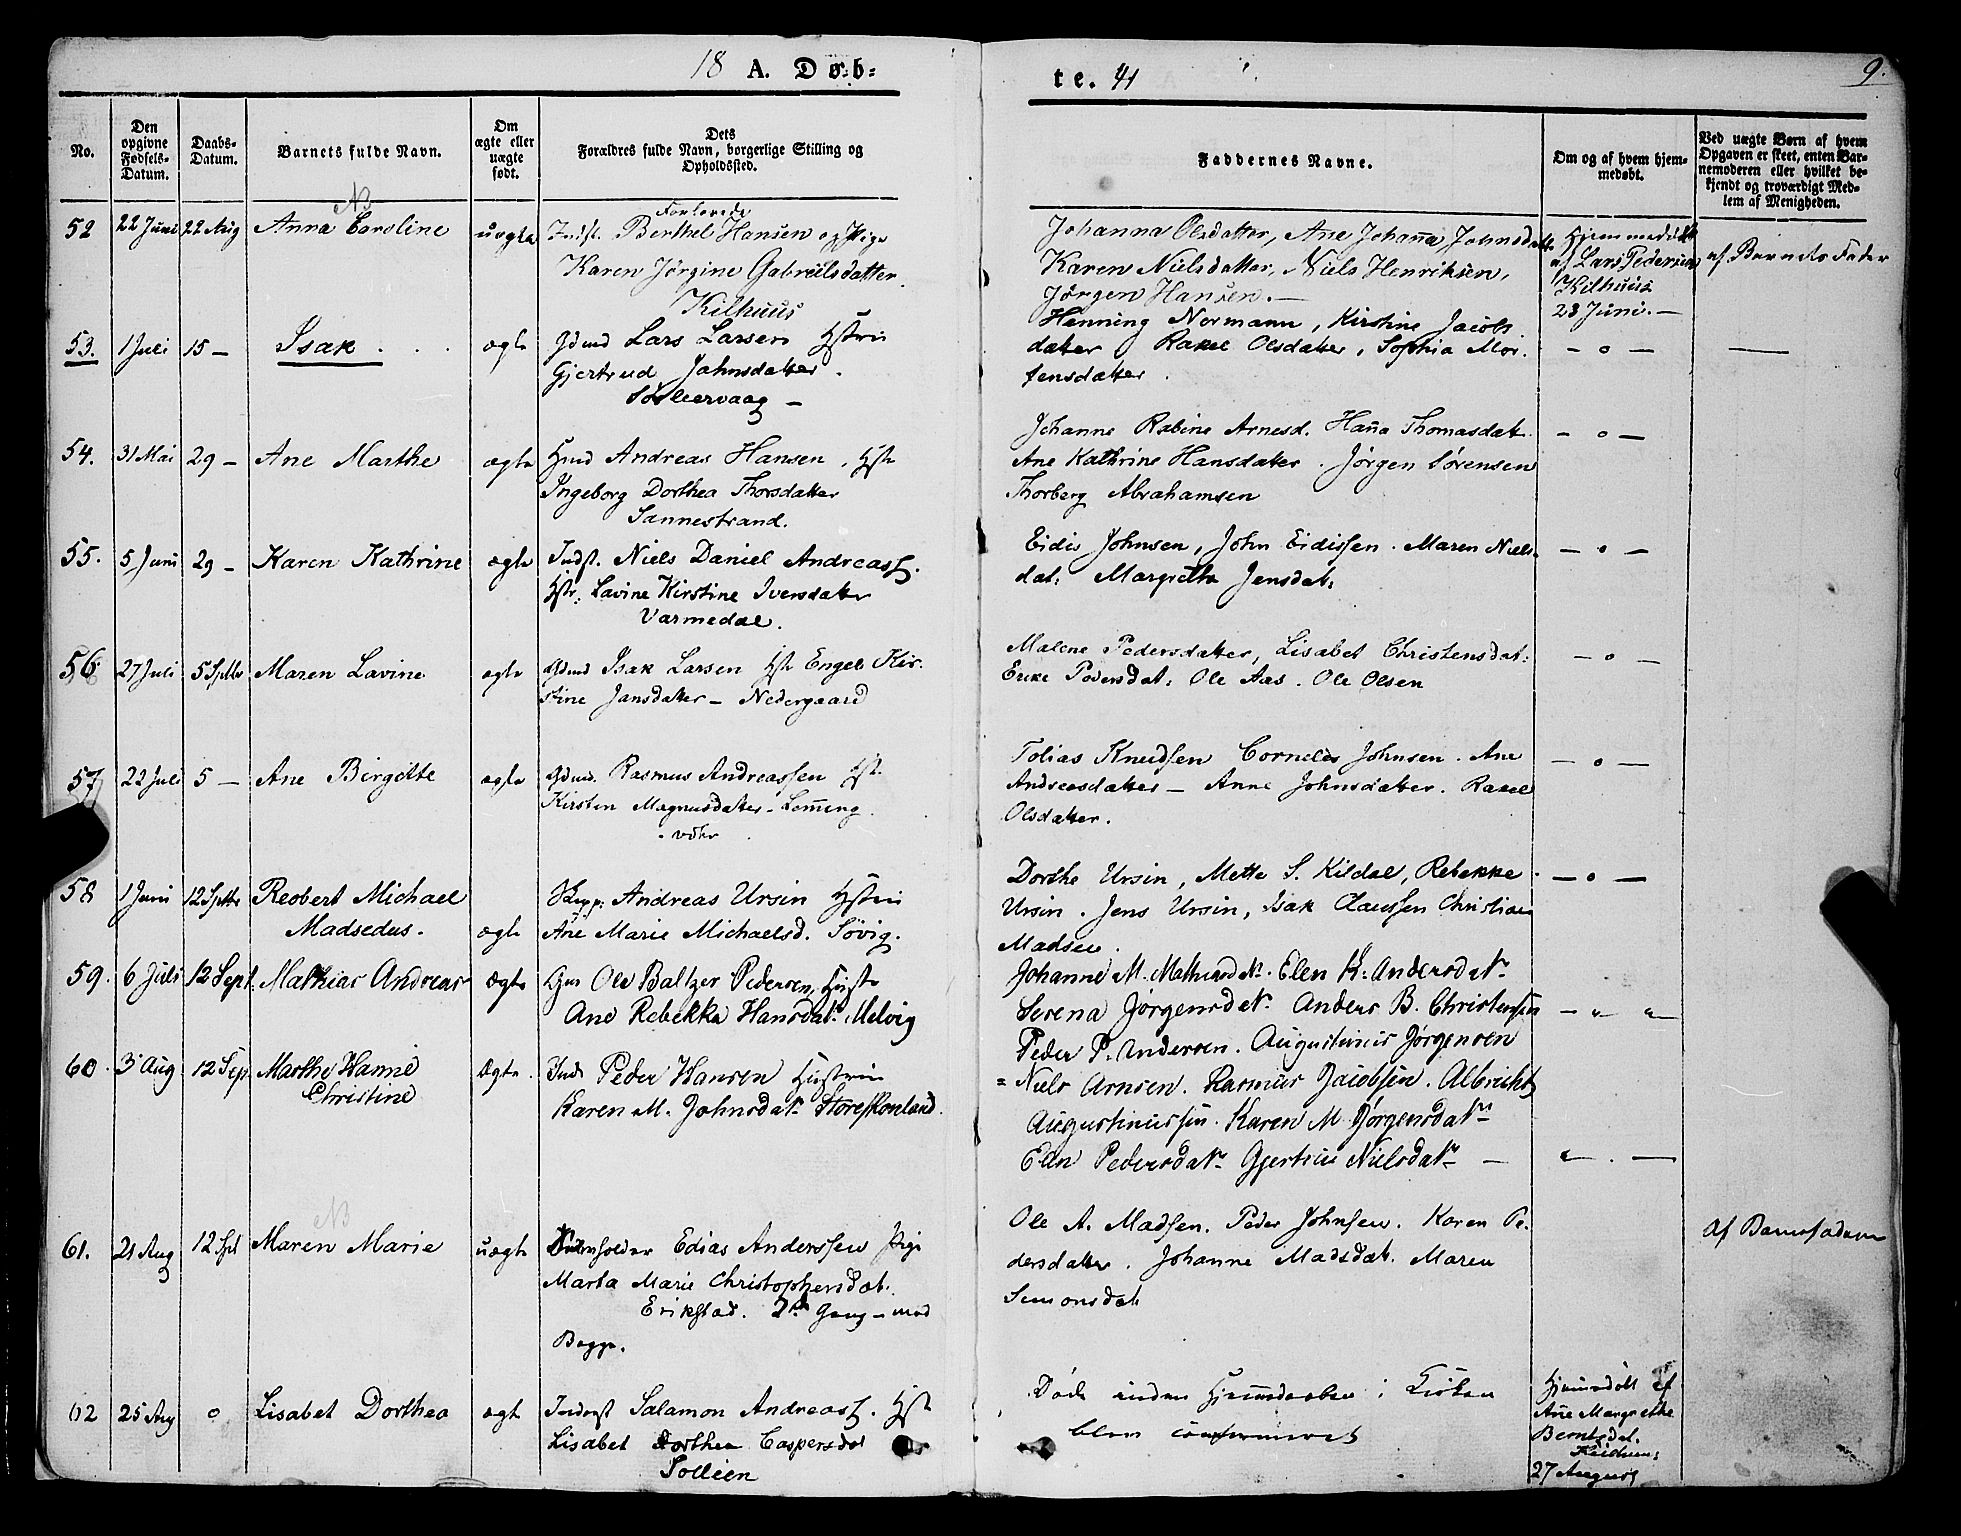 18 A. Døb=
te. 41
9.
No.
Den opgivne Fødsels-Datum.
Daabs-Datum.
Barnets fulde Navn.
Om ægte eller uægte født.
Dets Forældres fulde Navn, borgerlige Stilling og Opholdssted.
Faddernes Navne.
Om og af hvem hjemmedøbt.
Ved uægte Børn af hvem Opgaven er skeet, enten Barnemoderen eller hvilket bekjendt og troværdigt Medlem af Menigheden.
NB
52 22 Juni 22 Aug Anna Caroline uægte Indst. Berthel Hansen og Pige
Forlovede
Karen Jørgine Gabrielsdatter
Kilhuus
Johanna Olsdatter, Ane Johanna Johnsdatt
Karen Nielsdatter, Niels Henriksen,
Jørgen Hansen. —
Hjemmedøbt
af Lars Pedersen
Kilhuus
23 Juni. —
af Barnets Fader
53. 1 Juli 15 — Isak ægte Gdmd Lars Larsen Hstru
Gjertrud Johnsdatter.
Sørleervaag —
Henning Normann, Kirstine Jacobs
datter Rakel Olsdatter, Sophia Mor
tensdatter.
— o —
54. 31 Mai 29 — Ane Marthe ægte Hmd Andreas Hansen, Hst
Ingeborg Dorthea Thorsdatter
Sannestrand.
Johanne Rabine Arnesd. Hana Thomasdat
Ane Kathrine Hansdatter. Jørgen Sørensen
Thorberg Abrahamsen
— o —
55. 5 Juni 29 — Karen Kathrine ægte Indst. Niels Daniel Andreass.
Hstr: Lavine Kirstine Iversdatter
Varmedal.
Eidis Johnsen, John Eidissen. Maren Niels
dat: Margretha Jensdat:
— o —
56. 27 Juli 5 Septbr Maren Lavine ægte Gdmd Isak Larsen Hst Engel Kir-
stine Jansdatter — Nedergaard
Malene Pedersdatter, Lisabet Christensdat:
Pedersdat: Ole Aas. Ole Olsen
— o —
57 22 Juli 5 — Ane Birgitte ægte Gdmd. Rasmus Andreassen Hst.
Kirsten Magnusdatter Lemeng
vær
Tobias Knudsen Cornelius Johnsen. Ane
Andreasdatter — Anne Johnsdatter. Rakel
Olsdatter.
— o —
58 1 Juni 12 Septbr Reobert Michael
Madsedus. ægte Andreas Ursin Hstru
Ane Marie Michaelsd. Søvig.
Dorthe Ursin, Mette S. Kildal, Rebekke
Ursin. Jens Ursin, Isak Claussen Christian
Madsen.
— o —
59. 6 Juli 12 Sept. Mathias Andreas Ægte Ole Baltzer Pedersen, Hust
Ane Rebekka Hansdatr Melvig
Johanne M. Mathiasdtr. Elen K. Andersdatr
Serena Jørgensdatr. Anders B. Christensen
Peder P. Andersen. Augustinus Jørgensen
— " "
60. 3 Aug 12 Sep. Marthe Hanne
Christine Ægte. Inds Peder Hansen Hustru
Karen M. Johnsdatr Storeskonland.
= Niels Arnsen. Rasmus Jacobsen. Albricht
Augustinussen. Karen M. Jørgensdatr
Elen Pedersdatr. Gjertrue Nielsdatr —
" . —
NB
61. 21 Aug 12 Spt Maren Marie uægte Edias Anderssen Pige
Marta Marie Christophersdat.
Erikstad. 2den Gang — med
Begge.
Ole A. Madsen. Peder Johnsen. Karen Pe-
dersdatter. Johanne Madsdat. Maren
Simonsdat.
af Barnefaderen
62 25 Aug o Lisabet Dorthea ægte Inderst Salamon Andreass. Hst
Lisabet Dorthea Caspersdat
Sollien
Døde inden Hjemmedaaben i Kirken
blev confirmeret
Hjemdøbt af
Ane Margrethe
Berntsdat.
27 August